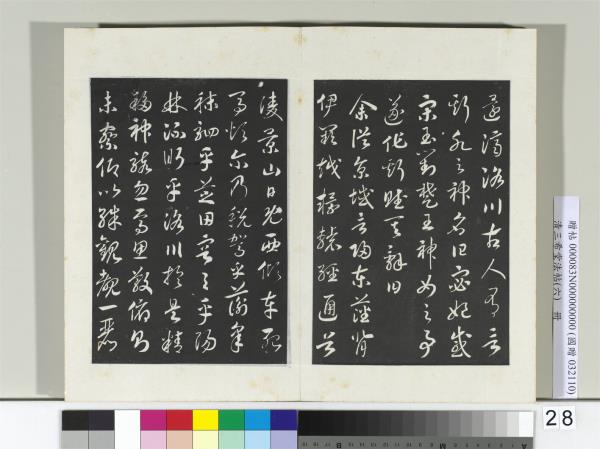 還濟洛川古人有言
斯水之神名曰宓妃感
宋玉對楚王神女之事
遂作斯賦其辭曰
余從京域言歸東藩背
伊闕越轘轅經通谷
陵景山日既西傾車殆
馬煩爾乃稅駕乎蘅皋
秣駟乎芝田容與乎陽
林流眄乎洛川於是精
移神駭忽焉思散俯則
未察仰以殊觀覩一麗
贈帖 000083N000000000 (國贈 032110)
清三希堂法帖(六) 冊
28